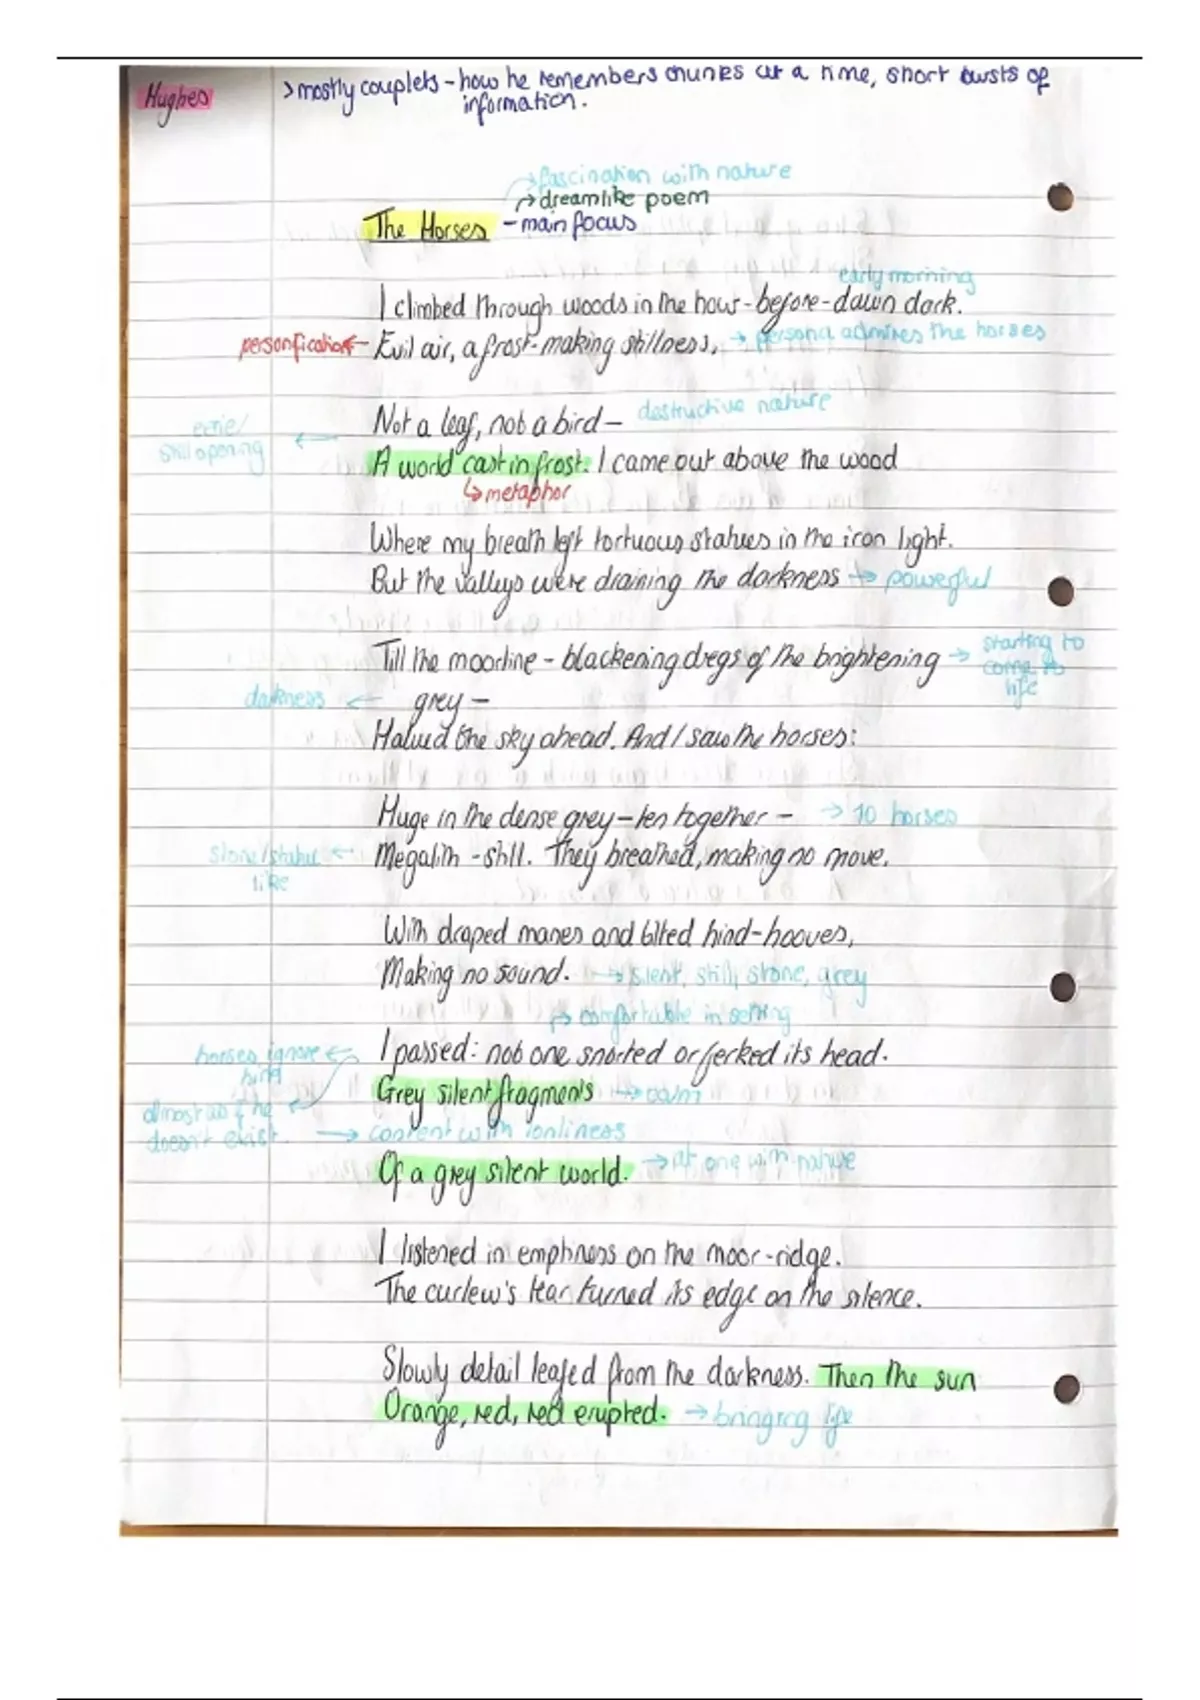 Hughes
>mostly couplets - how he remembers chunks at a time, short bursts of
information.
→fascination with nature
→dreamlike poem
The Horses - main focus
early morning
I climbed through woods in the hour-before-dawn dark.
personification← Evil air, a frost-making stillness, → persona admires the horses
Not a leaf, not a bird— destructive nature
eerie/
still opening ←
A world cast in frost. I came out above the wood
↳metaphor
Where my breath left tortuous statues in the iron light.
But the valleys were draining the darkness → powerful
Till the moorline - blackening dregs of the brightening → starting to
come to
life
darkness ← grey —
Halved the sky ahead. And I saw the horses:
Huge in the dense grey—ten together — → 10 horses
stone/statue ← Megalith-still. They breathed, making no move,
like
With draped manes and tilted hind-hooves,
Making no sound. → silent, still, stone, grey
→ comfortable in setting
horses ignore ← I passed: not one snorted or jerked its head.
him
Grey silent fragments → calm
almost as if he
doesn't exist. → content with lonliness
Of a grey silent world. → at one with nature
I listened in emptiness on the moor-ridge.
The curlew's tear turned its edge on the silence.
Slowly detail leafed from the darkness. Then the sun
Orange, red, red erupted. → bringing life